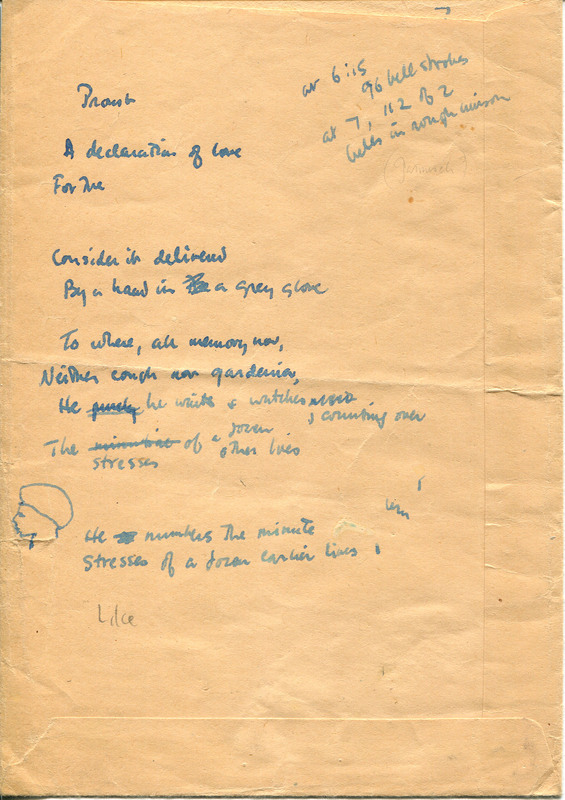 at 6:15
96 bell strokes
at 7, 112 of 2
bells in rough unison
Proust
A declaration of love
For me
Consider it delivered
By a hand in a grey glove
To where, all memory now,
Neither cough nor gardenia,
He purely he waits & watches, counting over
The of a dozen other lives
stresses
He numbers the minute
Stresses of a dozen earlier lives
Like